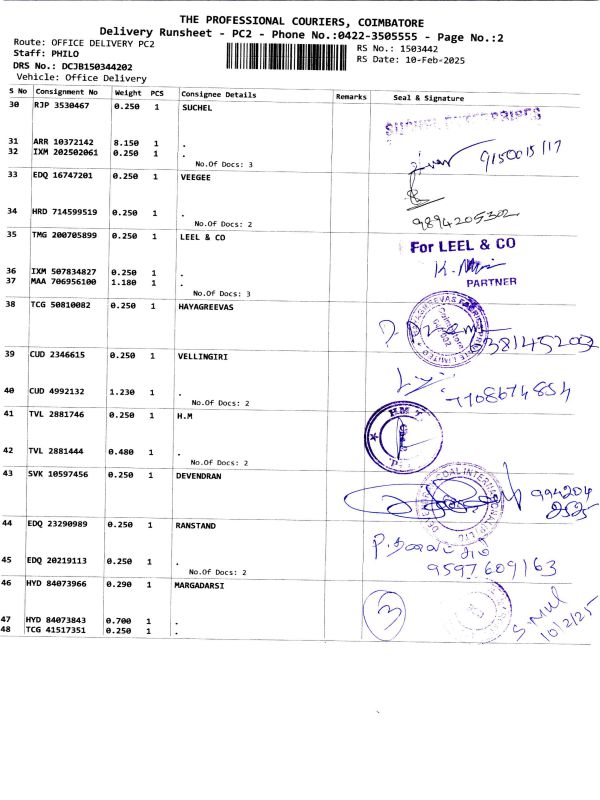 THE PROFESSIONAL COURIERS, COIMBATORE
Delivery Runsheet - PC2 - Phone No.:0422-3505555 - Page No.:2
Route: OFFICE DELIVERY PC2
RS No.: 1503442
Staff: PHILO
RS Date: 10-Feb-2025
DRS No.: DCJB150344202
Vehicle: Office Delivery
S No Consignment No Weight PCS Consignee Details Remarks Seal & Signature
30 RJP 3530467 0.250 1 SUCHEL
SUCHEL ENTERPRISES
31 ARR 10372142 8.150 1 .
32 IXM 202502061 0.250 1 .
No.Of Docs: 3
33 EDQ 16747201 0.250 1 VEEGEE
34 HRD 714599519 0.250 1 .
9894205302
No.Of Docs: 2
35 TMG 200705899 0.250 1 LEEL & CO
For LEEL & CO
36 IXM 507834827 0.250 1 .
37 MAA 706956100 1.180 1 .
PARTNER
No.Of Docs: 3
38 TCG 50810082 0.250 1 HAYAGREEVAS
39 CUD 2346615 0.250 1 VELLINGIRI
40 CUD 4992132 1.230 1 .
7708674854
No.Of Docs: 2
41 TVL 2881746 0.250 1 H.M
H.M.T.
42 TVL 2881444 0.480 1 .
No.Of Docs: 2
43 SVK 10597456 0.250 1 DEVENDRAN
994204
44 EDQ 23290989 0.250 1 RANSTAND
45 EDQ 20219113 0.250 1 .
9597609163
No.Of Docs: 2
46 HYD 84073966 0.290 1 MARGADARSI
3
10/2/25
47 HYD 84073843 0.700 1 .
48 TCG 41517351 0.250 1 .